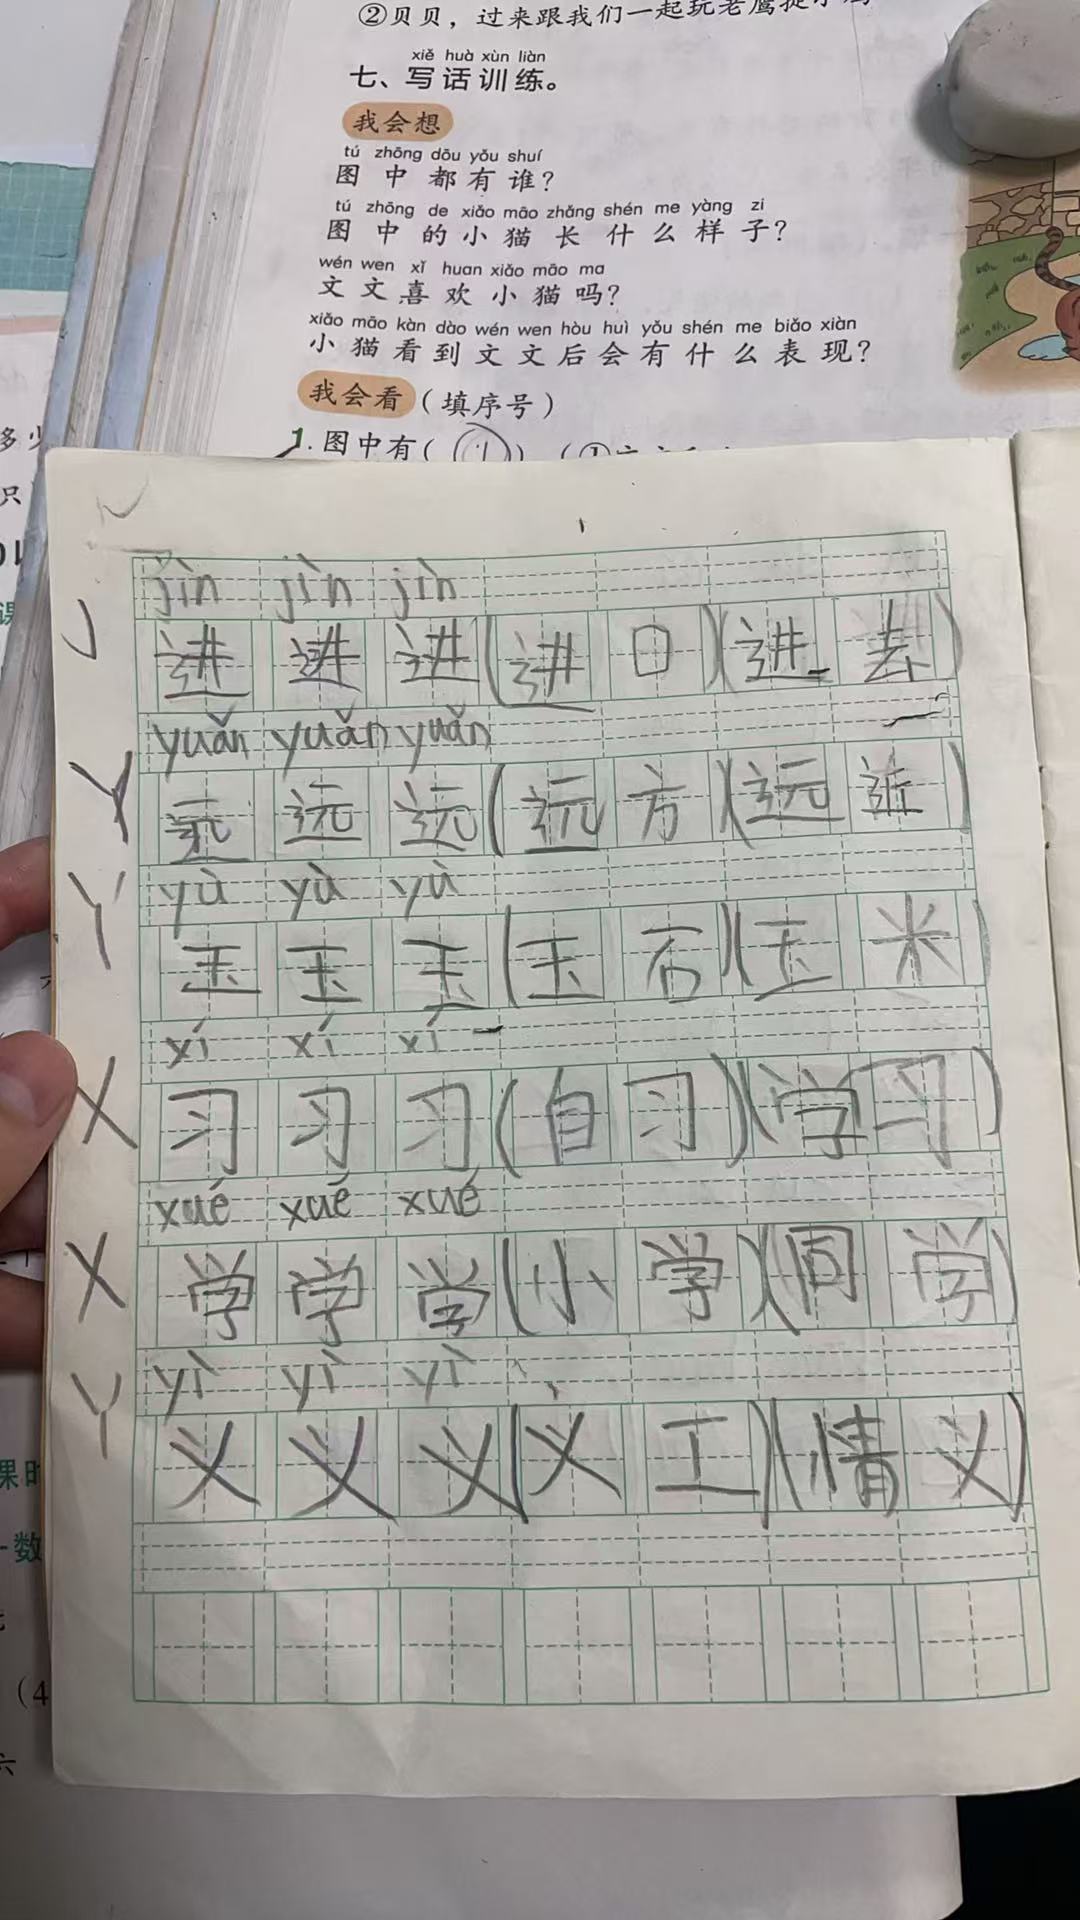 ②贝贝，过来跟我们一起玩老鹰捉小
xiě huà xùn liàn
七、写话训练。
我会想
tú zhōng dōu yǒu shuí
图中都有谁？
tú zhōng de xiǎo māo zhǎng shén me yàng zi
图中的小猫长什么样子？
wén wen xǐ huan xiǎo māo ma
文文喜欢小猫吗？
xiǎo māo kàn dào wén wen hòu huì yǒu shén me biǎo xiàn
小猫看到文文后会有什么表现？
我会看（填序号）
1.图中有(①)
jìn jìn jìn
J 进 进 进 (进口)(进去)
yuǎn yuǎn yuǎn
Y 远 远 远 (远方)(远近)
yù yù yù
Y 玉 玉 玉 (玉石)(玉米)
xí xí xí
X 习 习 习 (自习)(学习)
xué xué xué
X 学 学 学 (小学)(同学)
yì yì yì
Y 义 义 义 (义工)(情义)